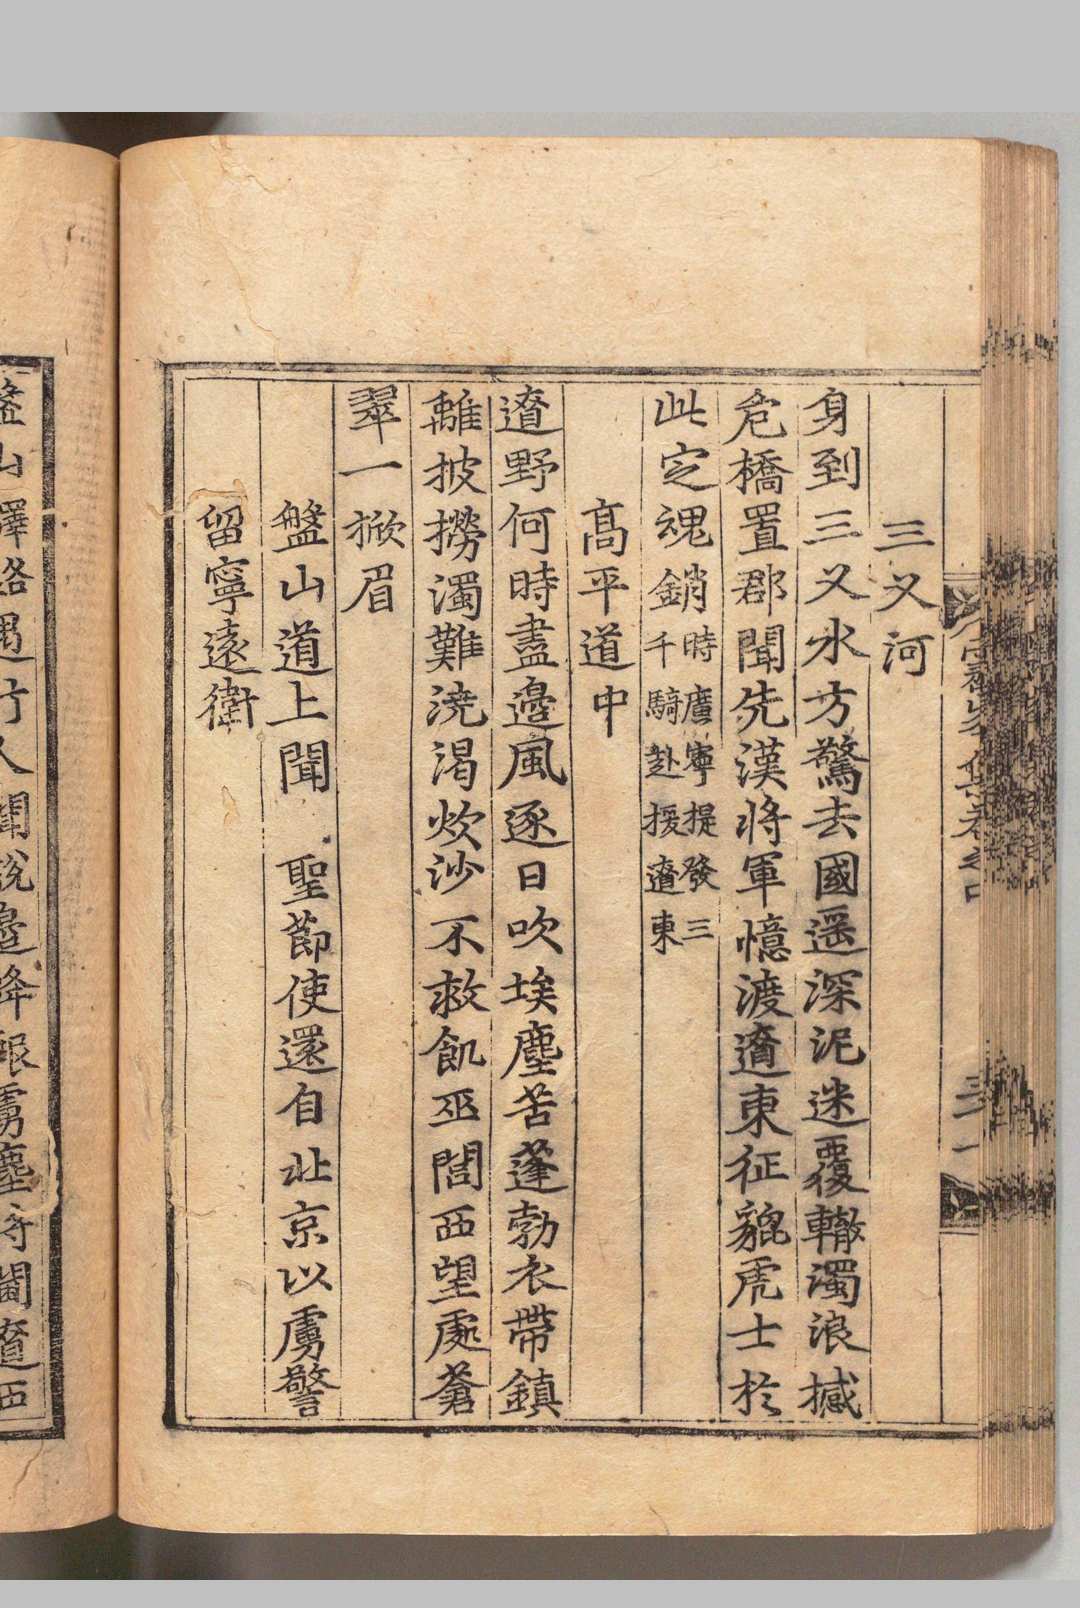 三叉河
身到三叉水方驚去國遥深泥迷覆轍濁浪撼
危橋置郡聞先漢將軍憶渡遼東征貔虎士於
此定魂銷時廣寧提發三千騎赴援遼東
高平道中
遼野何時盡邊風逐日吹埃塵苦蓬勃衣帶鎮
離披撈濁難澆渴炊沙不救飢巫閭西望處蒼
翠一掀眉
盤山道上聞　聖節使還自北京以虜警
留寧遠衛
盤山驛路遇行人聞說邊烽報虜塵將閫遼西